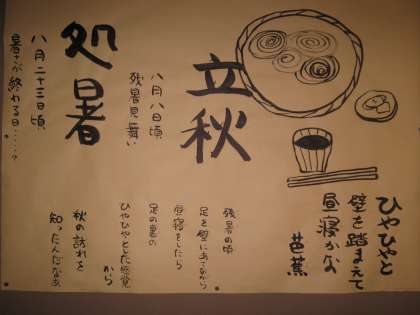 ひやひやと
壁を踏まえて
昼寝かな
芭蕉
立秋
八月八日頃
残暑見舞い
残暑の頃
足を壁にあてながら
昼寝をしたら
足の裏の
ひやひやとした感覚
から
秋の訪れを
知ったんだなあ
処暑
八月二十三日頃
暑さが終わる日・・・・?